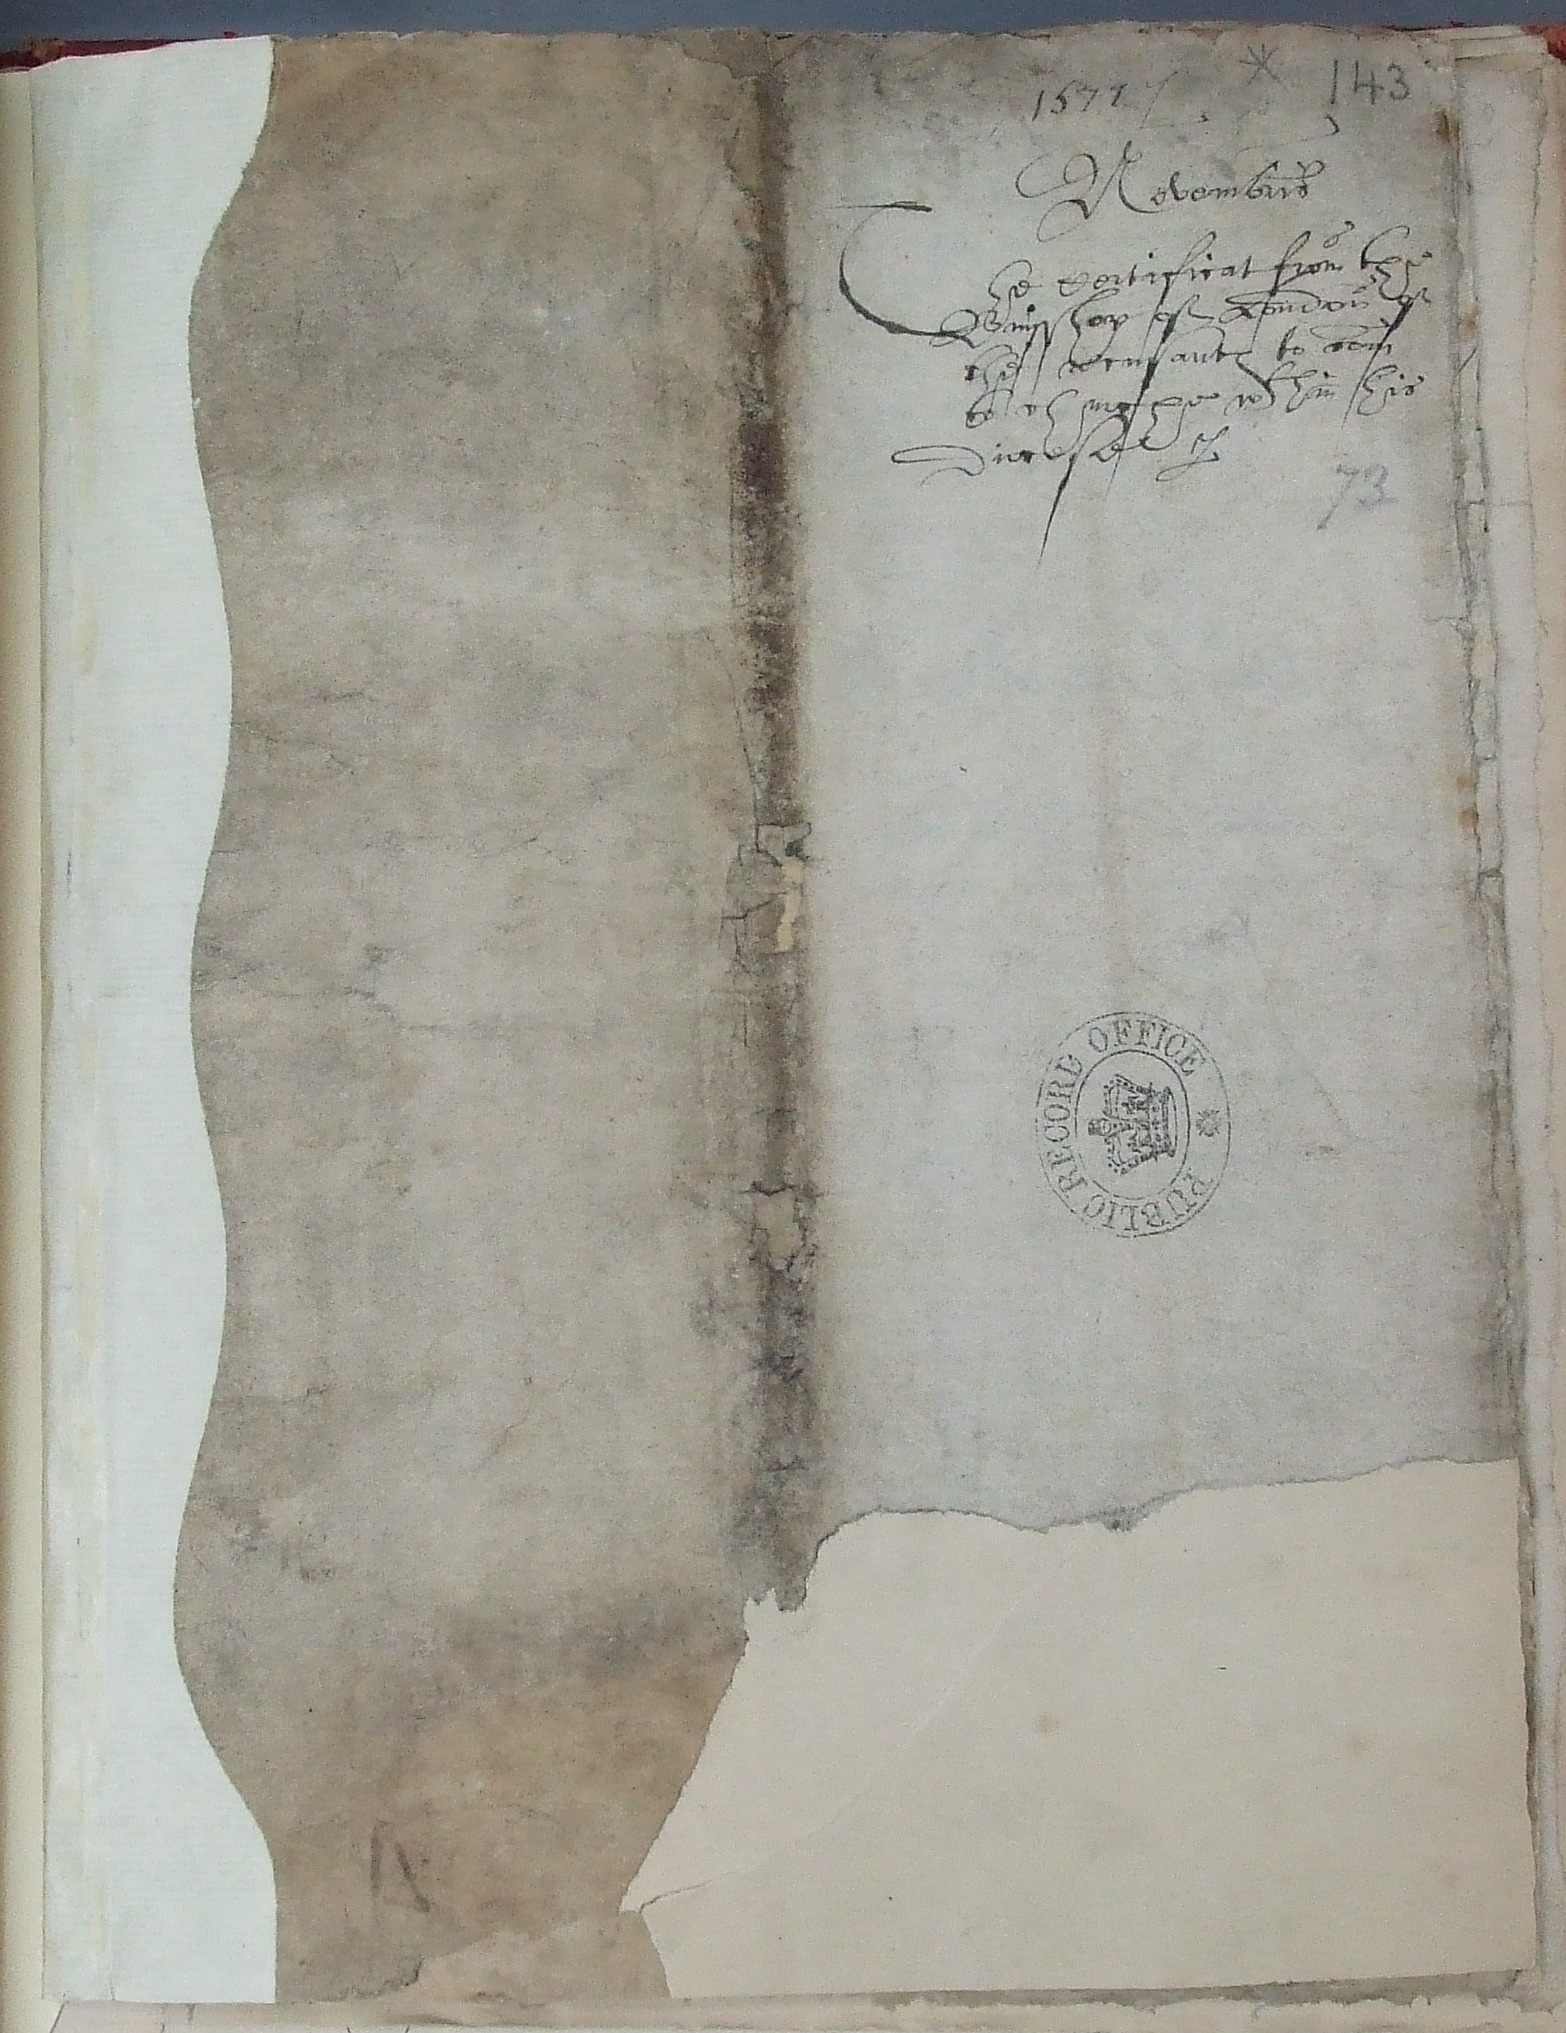 1577
143
Novembris
The certificat from the
Busshop of London of
the recusantes to com
to churche wthin his
Diocese
73
PUBLIC RECORD OFFICE